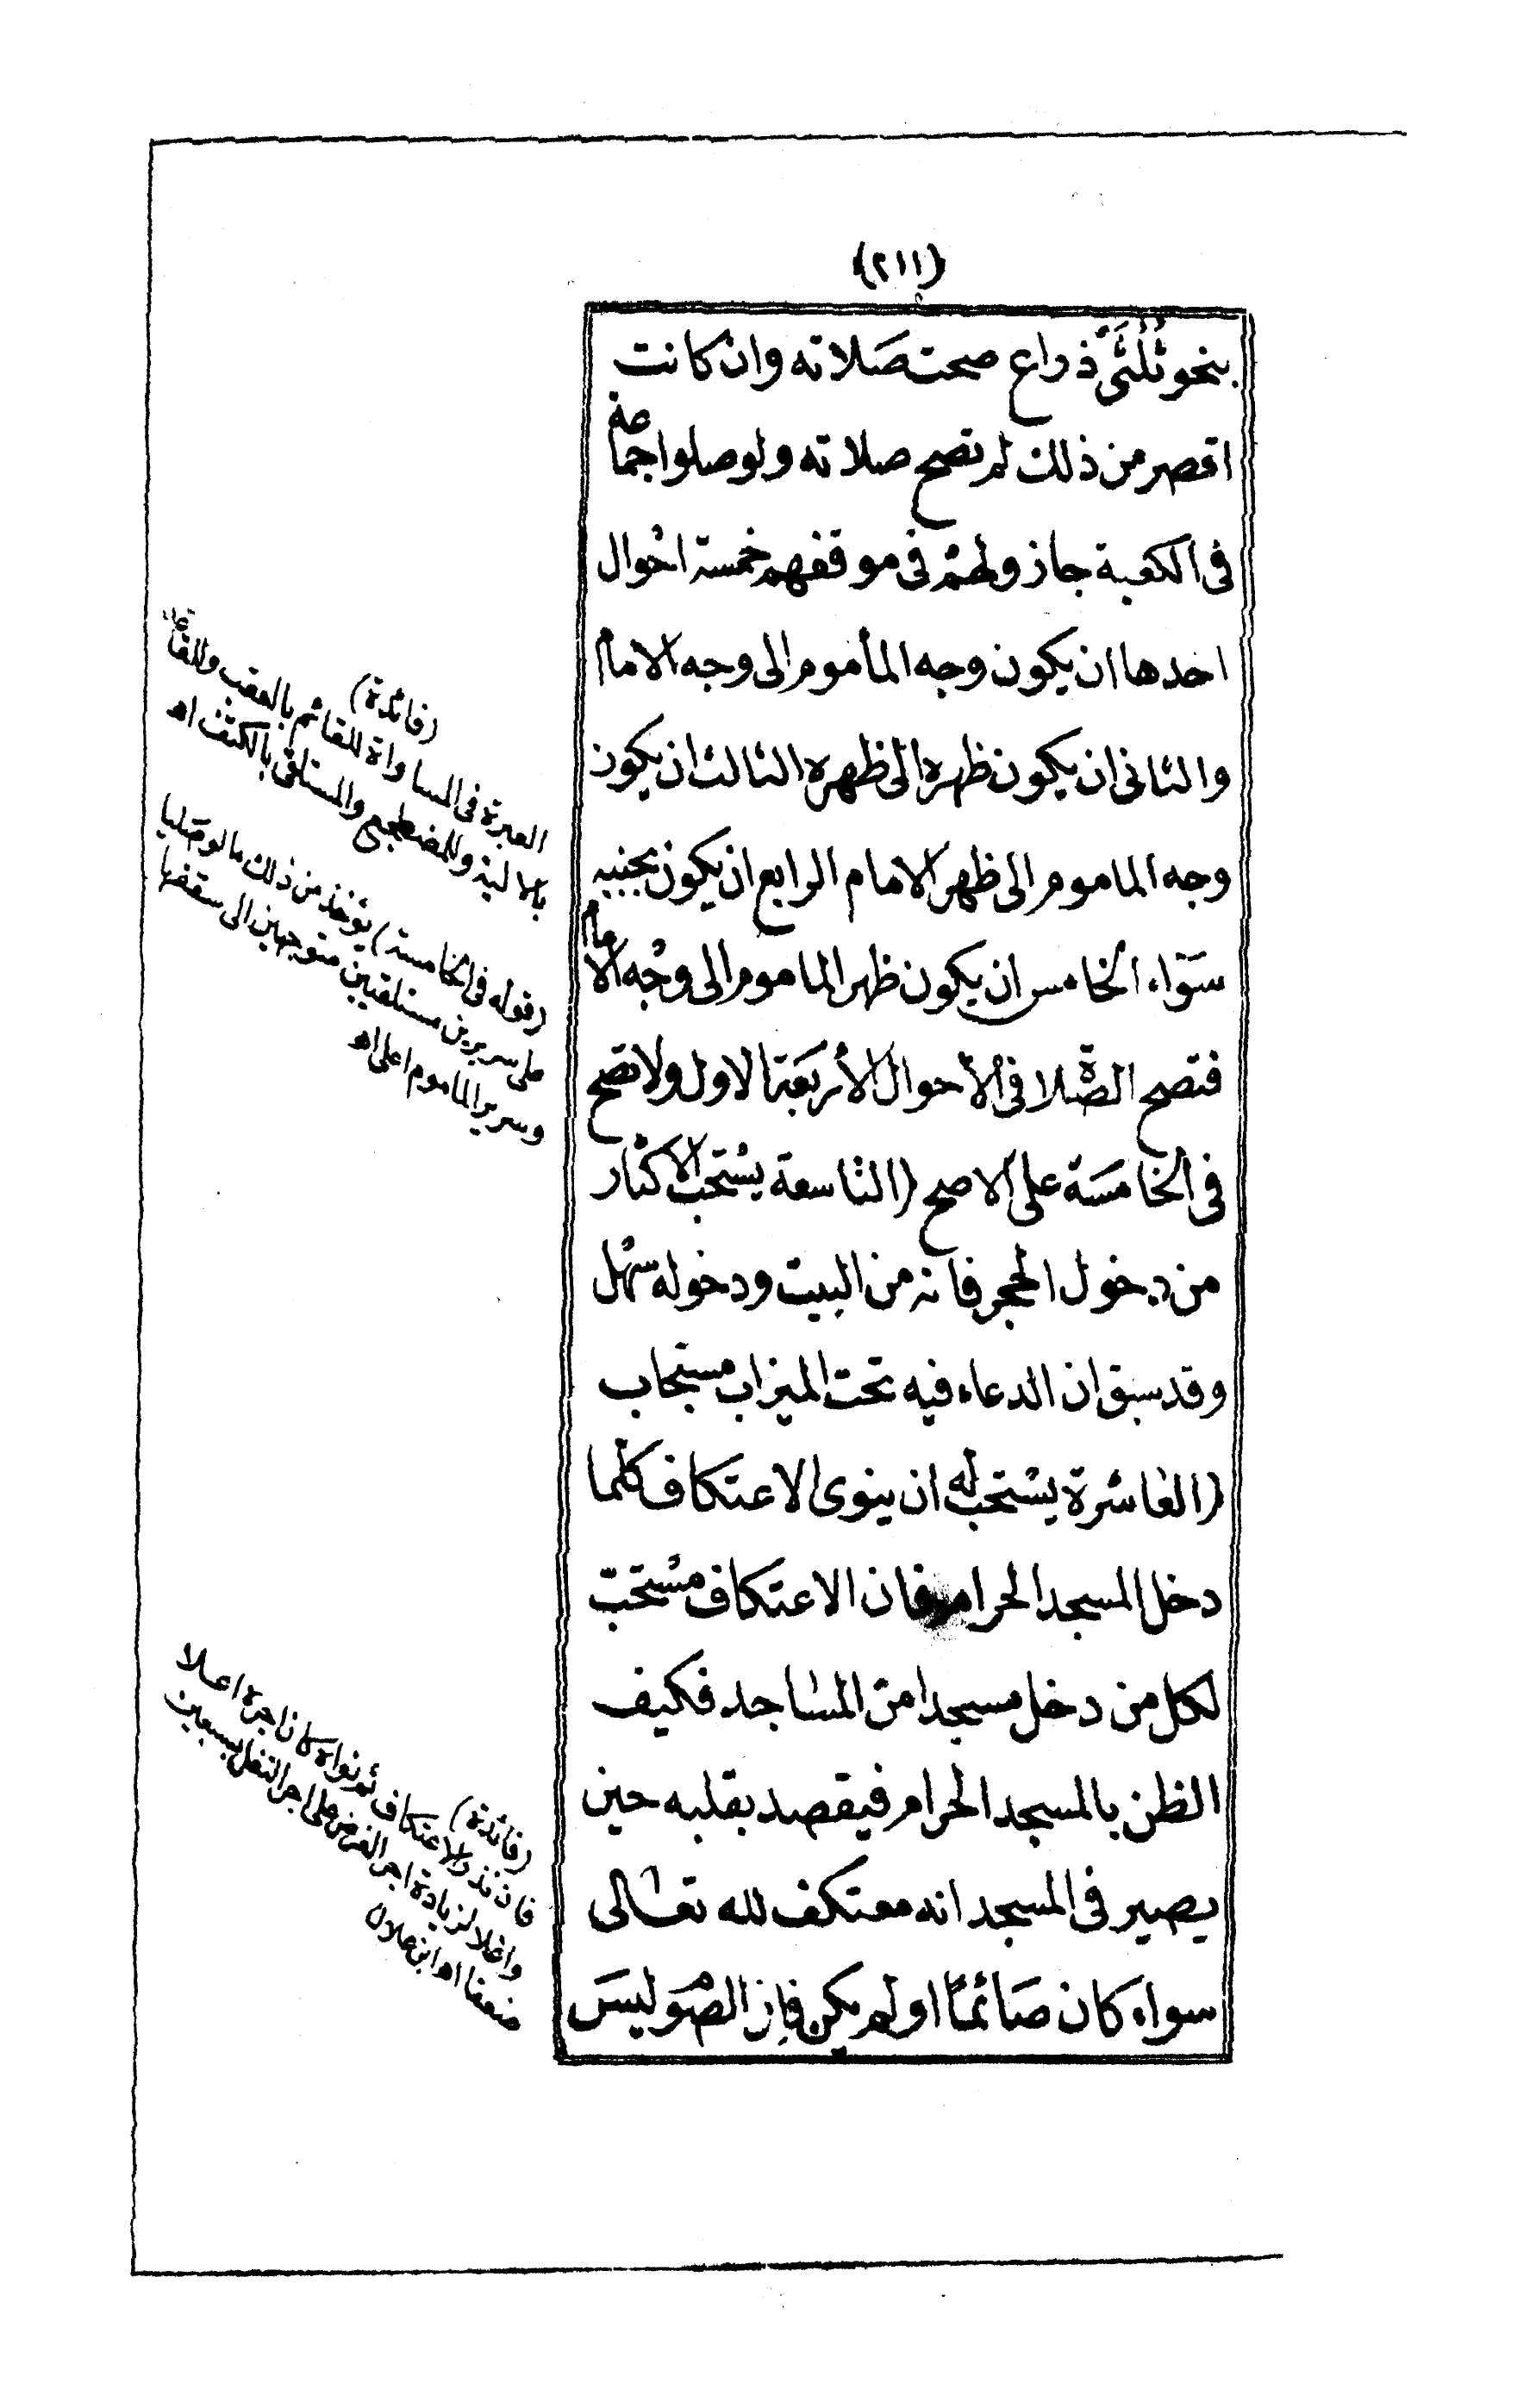 (٢١١)
بنحو ثُلُثَىْ ذراع صحت صَلاته وان كانت
اقصر من ذلك لم تصح صلاته ولو صلوا جماعة
فى الكعبة جاز ولهُمْ فى موقفهم خمسة احْوال
احدها ان يكون وجه المأموم الى وجه الامام
والثانى ان يكون ظهره الى ظهره الثالث ان يكون
وجه الماموم الى ظهر الامام الرابع ان يكون بجنبه
سَوَاء الخامس ان يكون ظهر الماموم الى وجْه الامام
فتصح الصَّلاة فى الأحوال الأربَعَة الاول ولا تصح
فى الخامسَة على الاصح (التاسعة يسْتحَب الاكثار
من دخول الحجر فانه من البيت ودخوله سَهْل
وقد سبق ان الدعاء فيه تحت الميزاب مستجاب
(العاشرة يسْتحب له ان ينوى الاعتكاف كلّما
دخل المسجد الحرام فان الاعتكاف مسْتحَبّ
لكل من دخل مسجدا من المسَاجد فكيف
الظن بالمسجد الحرام فيقصد بقلبه حين
يصير فى المسجد انه معتكف لله تعَالى
سواء كان صَائمًا او لم يكن فإن الصَّوْم ليسَ
(فائدة)
العبرة فى المساواة للقائم بالعقب وللقاعد
بالالية وللمضطجع والمستلقى بالكتف اه
(قوله فى الخامسة) يؤخذ من ذلك ما لو صَليا
على سريرين مستلقيين متوجهين الى سقفها
وسرير الماموم اعلى اه
(فائدة)
فان نذر الاعتكاف ثم نواه كان اجره اعلا
واغلا لزيادة اجر الفرض على اجر النفل بسبعين
ضعفا اه ابن علان